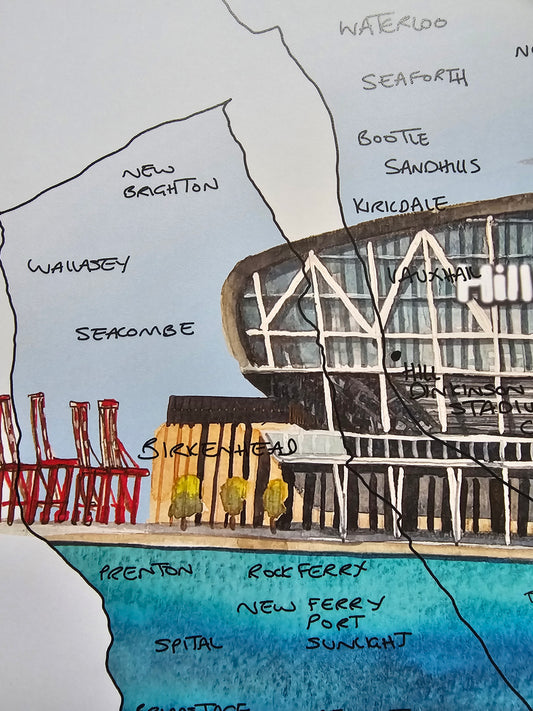 WATERLOO
NO
SEAFORTH
BOOTLE
SANDHILLS
NEW
BRIGHTON
KIRKDALE
WALLASEY
VAUXHALL
Hill
SEACOMBE
HILL
DICKINSON
STADIU
C
BIRKENHEAD
PRENTON
ROCK FERRY
NEW FERRY
PORT
SUNLIGHT
SPITAL